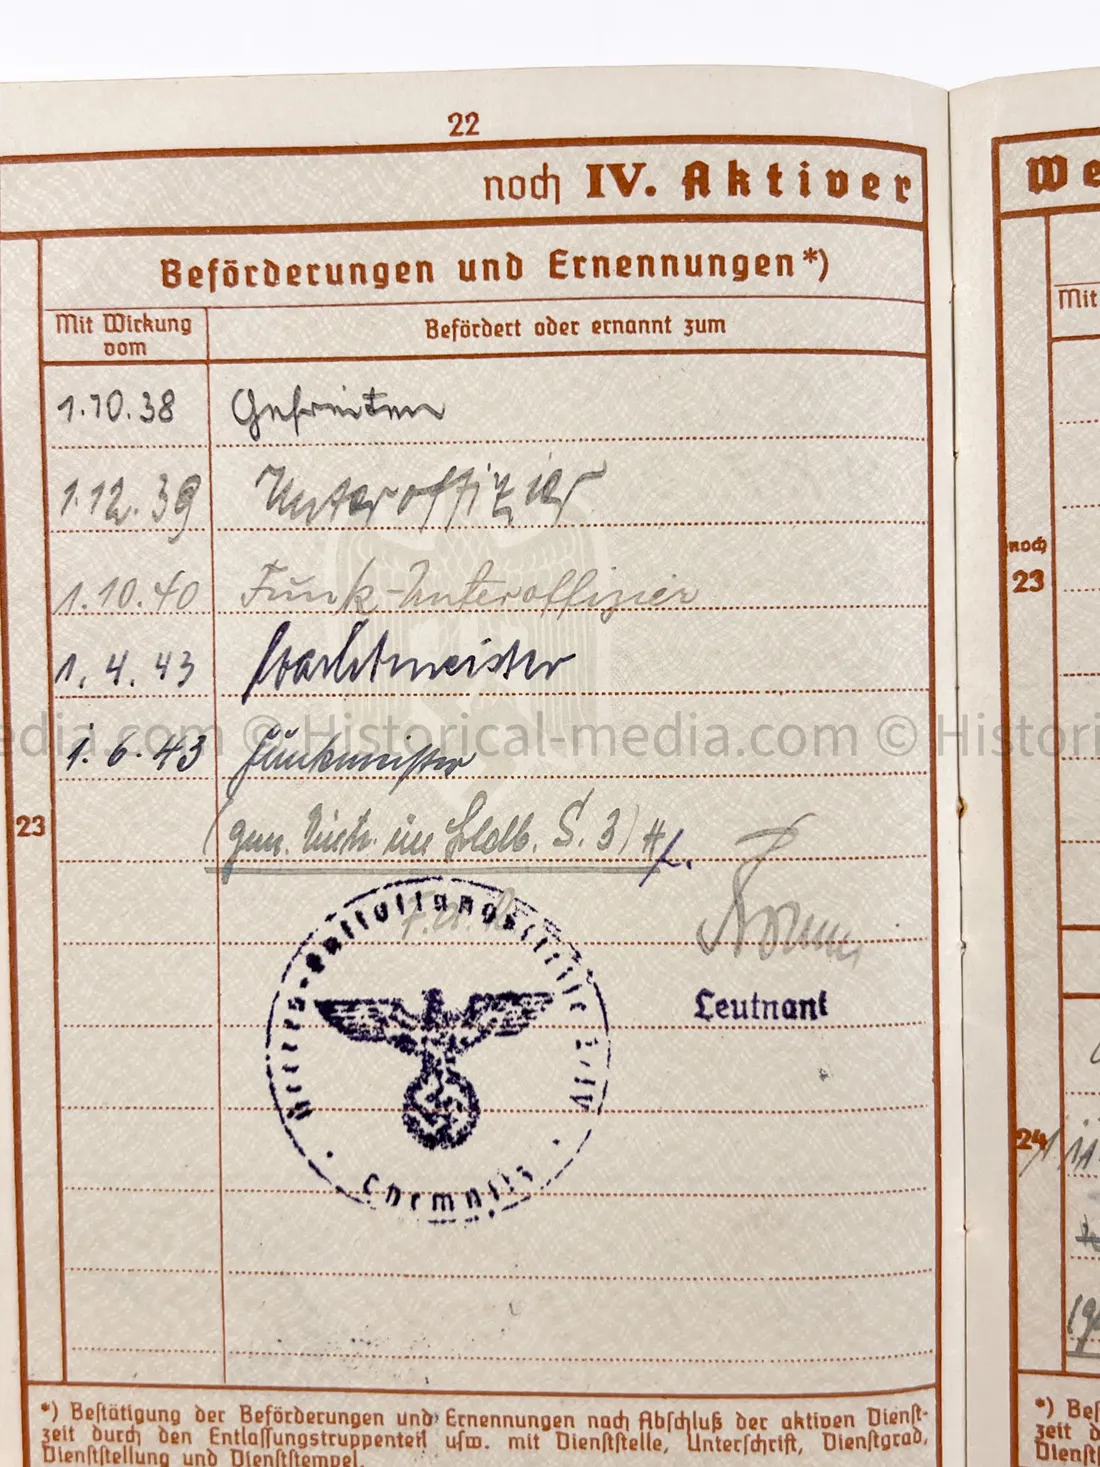 22
noch IV. Aktiver
We
Beförderungen und Ernennungen*)
Mit Wirkung vom
Befördert oder ernannt zum
Mit
1.10.38 Gefreiten
1.12.39 Unteroffizier
1.10.40 Funk-Unteroffizier
1.4.43 Wachtmeister
edia.com © Historical-media.com © Histori
1.6.43 Funkmeister
23
(gem. Eintr. im Soldb. S. 3)
noch
23
Heeres-Entlassungsstelle
Leutnant
Chemnitz
24
*) Bestätigung der Beförderungen und Ernennungen nach Abschluß der aktiven Dienst-
zeit durch den Entlassungstruppenteil usw. mit Dienststelle, Unterschrift, Dienstgrad,
Dienststellung und Dienststempel.
*) Bes
zeit d
Dienst